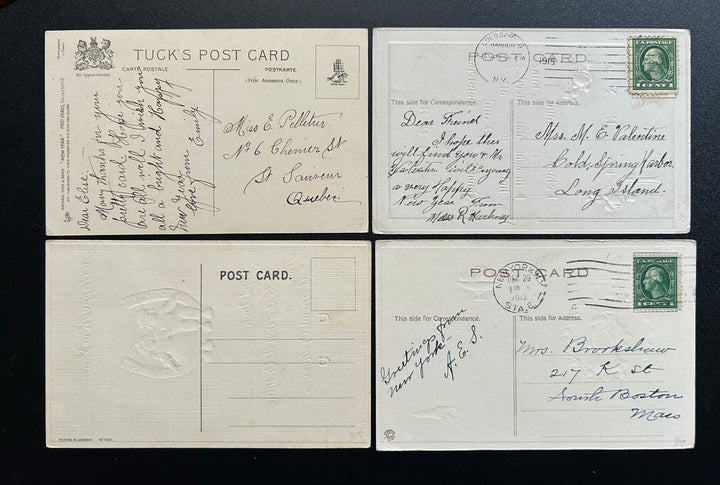 TUCK'S POST CARD
By Appointment
CARTE POSTALE
POSTKARTE.
(FOR ADDRESS ONLY)
Dear Elsie.
Many thanks for your
pretty card. Hope you
are all well I wish you
all a bright and Happy
New Year
Love from Emily
Miss E. Pelletier
No 6 Chenier St
St Sauveur
Quebec
COLD SPRING
HARBOR
1915
N.Y.
POST CARD
U.S. POSTAGE
1 CENT 1
This side for Correspondence.
This side for address.
Dear Friend
I hope this
will find you &
a very Happy
New Year From
Mrs. M. E. Valentine
Cold Spring Harbor
Long Island.
POST CARD.
PRINTED IN GERMANY
POST CARD
NEW YORK
DEC 29
1912
STA. E
U.S. POSTAGE
1 CENT 1
This side for Correspondence.
This side for Address.
Greetings from
New York
A. E. S.
Mrs. Brookshaw
217 K St
South Boston
Mass